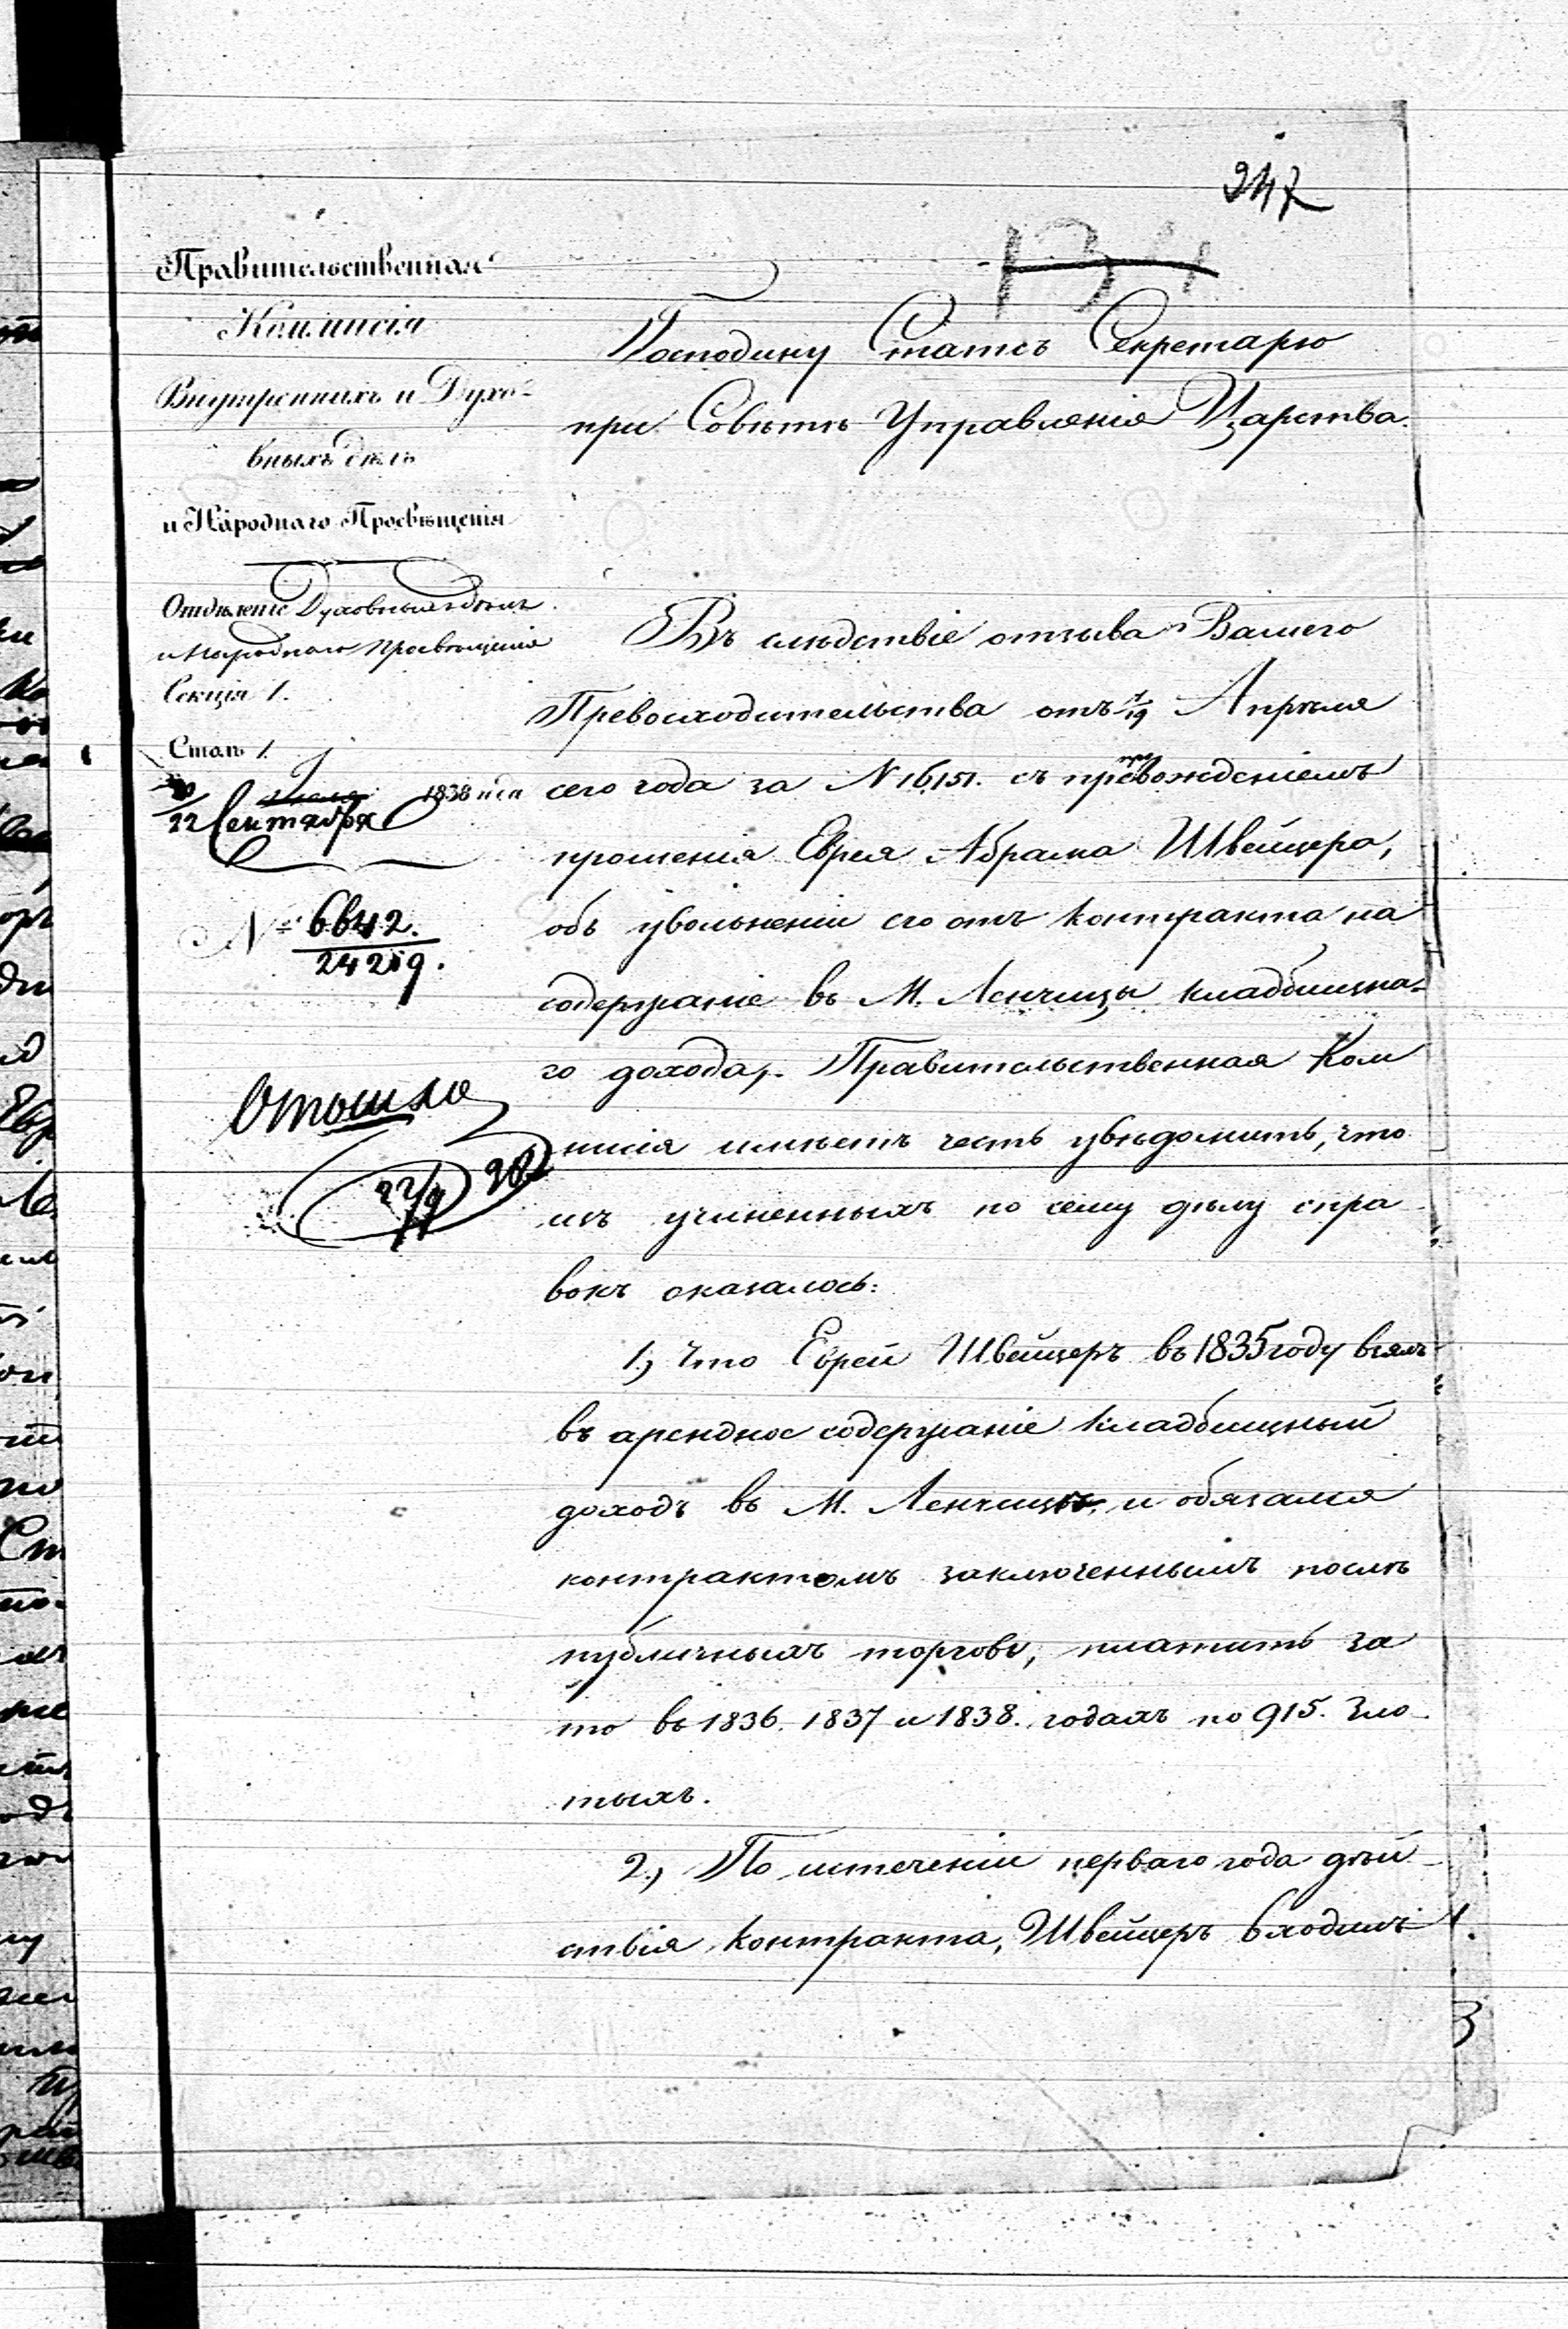 247
134
Правительственная
Коммисія
Внутреннихъ и Духо-
вныхъ дѣлъ
и Народнаго Просвѣщенія
Отдѣленіе Духовныхъ дѣлъ
и Народнаго Просвѣщенія
Секція 1.
Столъ 1.
1838 года
22 Сентября
№ 6642.
24219.
Отошло
22/9 38
Господину Статсъ Секретарю
при Совѣтѣ Управленія Царства.
Въ слѣдствіе отзыва Вашего
Превосходительства отъ 7/19 Апрѣля
сего года за N 16,151. съ препровожденіемъ
прошенія Еврея Абрама Швейцера,
объ увольненіи его отъ контракта на
содержаніе въ М. Ленчицы кладбищна-
го дохода, Правительственная Ком
мисія имѣетъ честь увѣдомить, что
изъ учиненныхъ по сему дѣлу спра-
вокъ оказалось:
1.) Что Еврей Швейцеръ въ 1835 году взялъ
въ арендное содержаніе кладбищный
доходъ въ М. Ленчицѣ, и обязался
контрактомъ заключеннымъ послѣ
публичныхъ торговъ, платить за
то въ 1836. 1837 и 1838. годахъ по 915. Зло-
тыхъ.
2.) По истеченіи перваго года дѣй-
ствія контракта, Швейцеръ входилъ